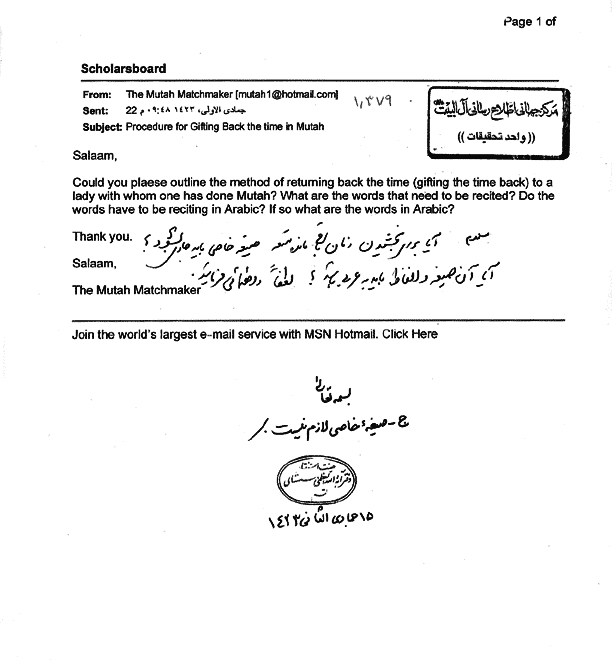 Page 1 of
Scholarsboard
From: The Mutah Matchmaker [mutah1@hotmail.com]
Sent: 22 جمادي الاولى، ١٤٢٣ ٠٩:٤٨ م
Subject: Procedure for Gifting Back the time in Mutah
١,٣٧٩
مركز جهانى اطلاع رسانى آل البيت
((واحد تحقيقات))
Salaam,
Could you plaese outline the method of returning back the time (gifting the time back) to a
lady with whom one has done Mutah? What are the words that need to be recited? Do the
words have to be reciting in Arabic? If so what are the words in Arabic?
Thank you.
سلام آیا برای بخشیدن زمان باقی مانده متعه صیغه خاصی باید جاری شود؟
Salaam,
آیا آن صیغه و الفاظ باید به عربی باشد؟ لطفاً راهنمائی فرمایید.
The Mutah Matchmaker
Join the world's largest e-mail service with MSN Hotmail. Click Here
بسمه تعالی
ج - صیغهٔ خاصی لازم نیست
دفتر آية الله العظمى سيستاني
١٥ جمادی الثانی ١٤٢٣